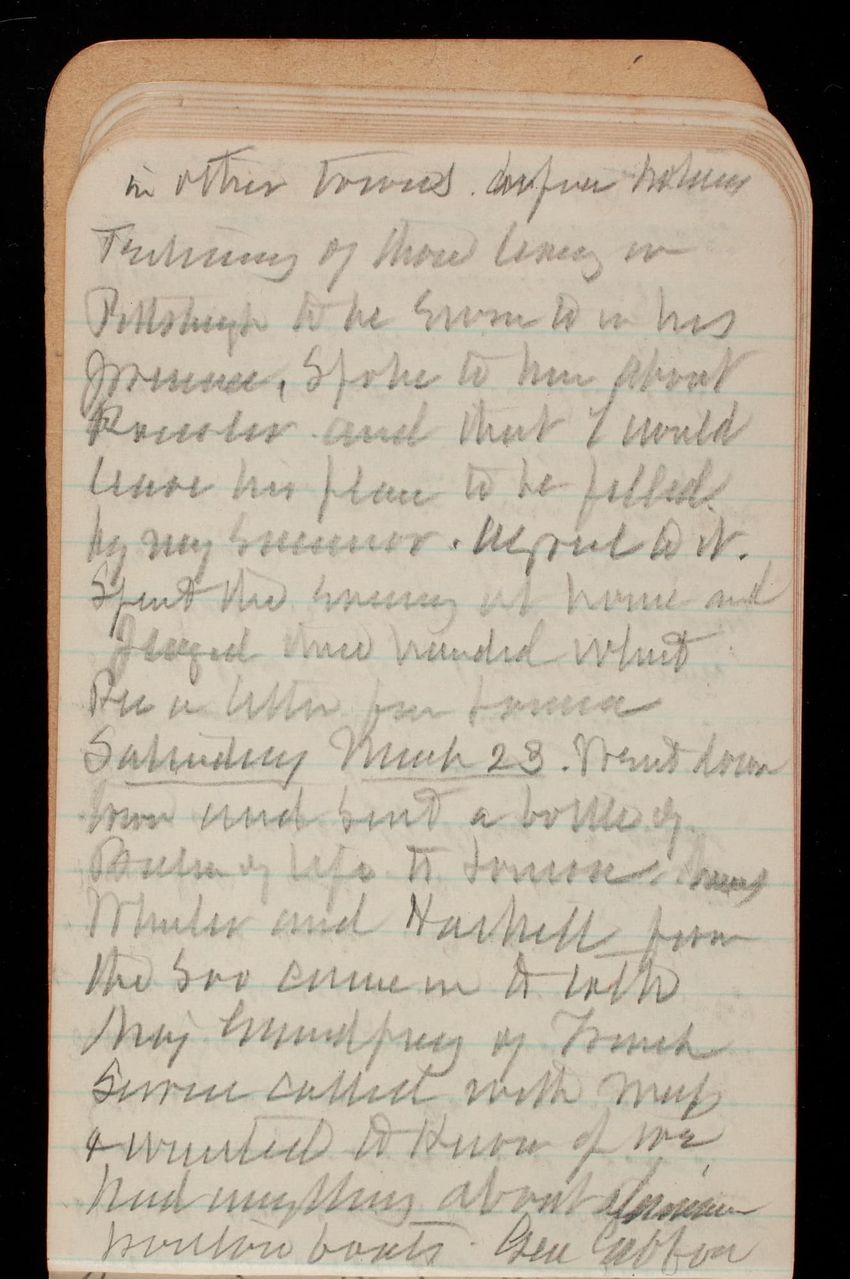 in other towns.
Testimony of those living in
Pittsburgh to be sworn to in his
presence. Spoke to him about
Roessler and that I would
leave his place to be filled
by my successor. Agreed to it.
Spent the evening at home and
played three handed whist
Rec a letter from
Saturday March 23. Went down
town and sent a bottle of
of life to
Wheeler and Haskell from
the Soo came in to talk
Maj of French
Service called with Maj
& wanted to know if we
had anything about
ponton boats. Gen Abbot